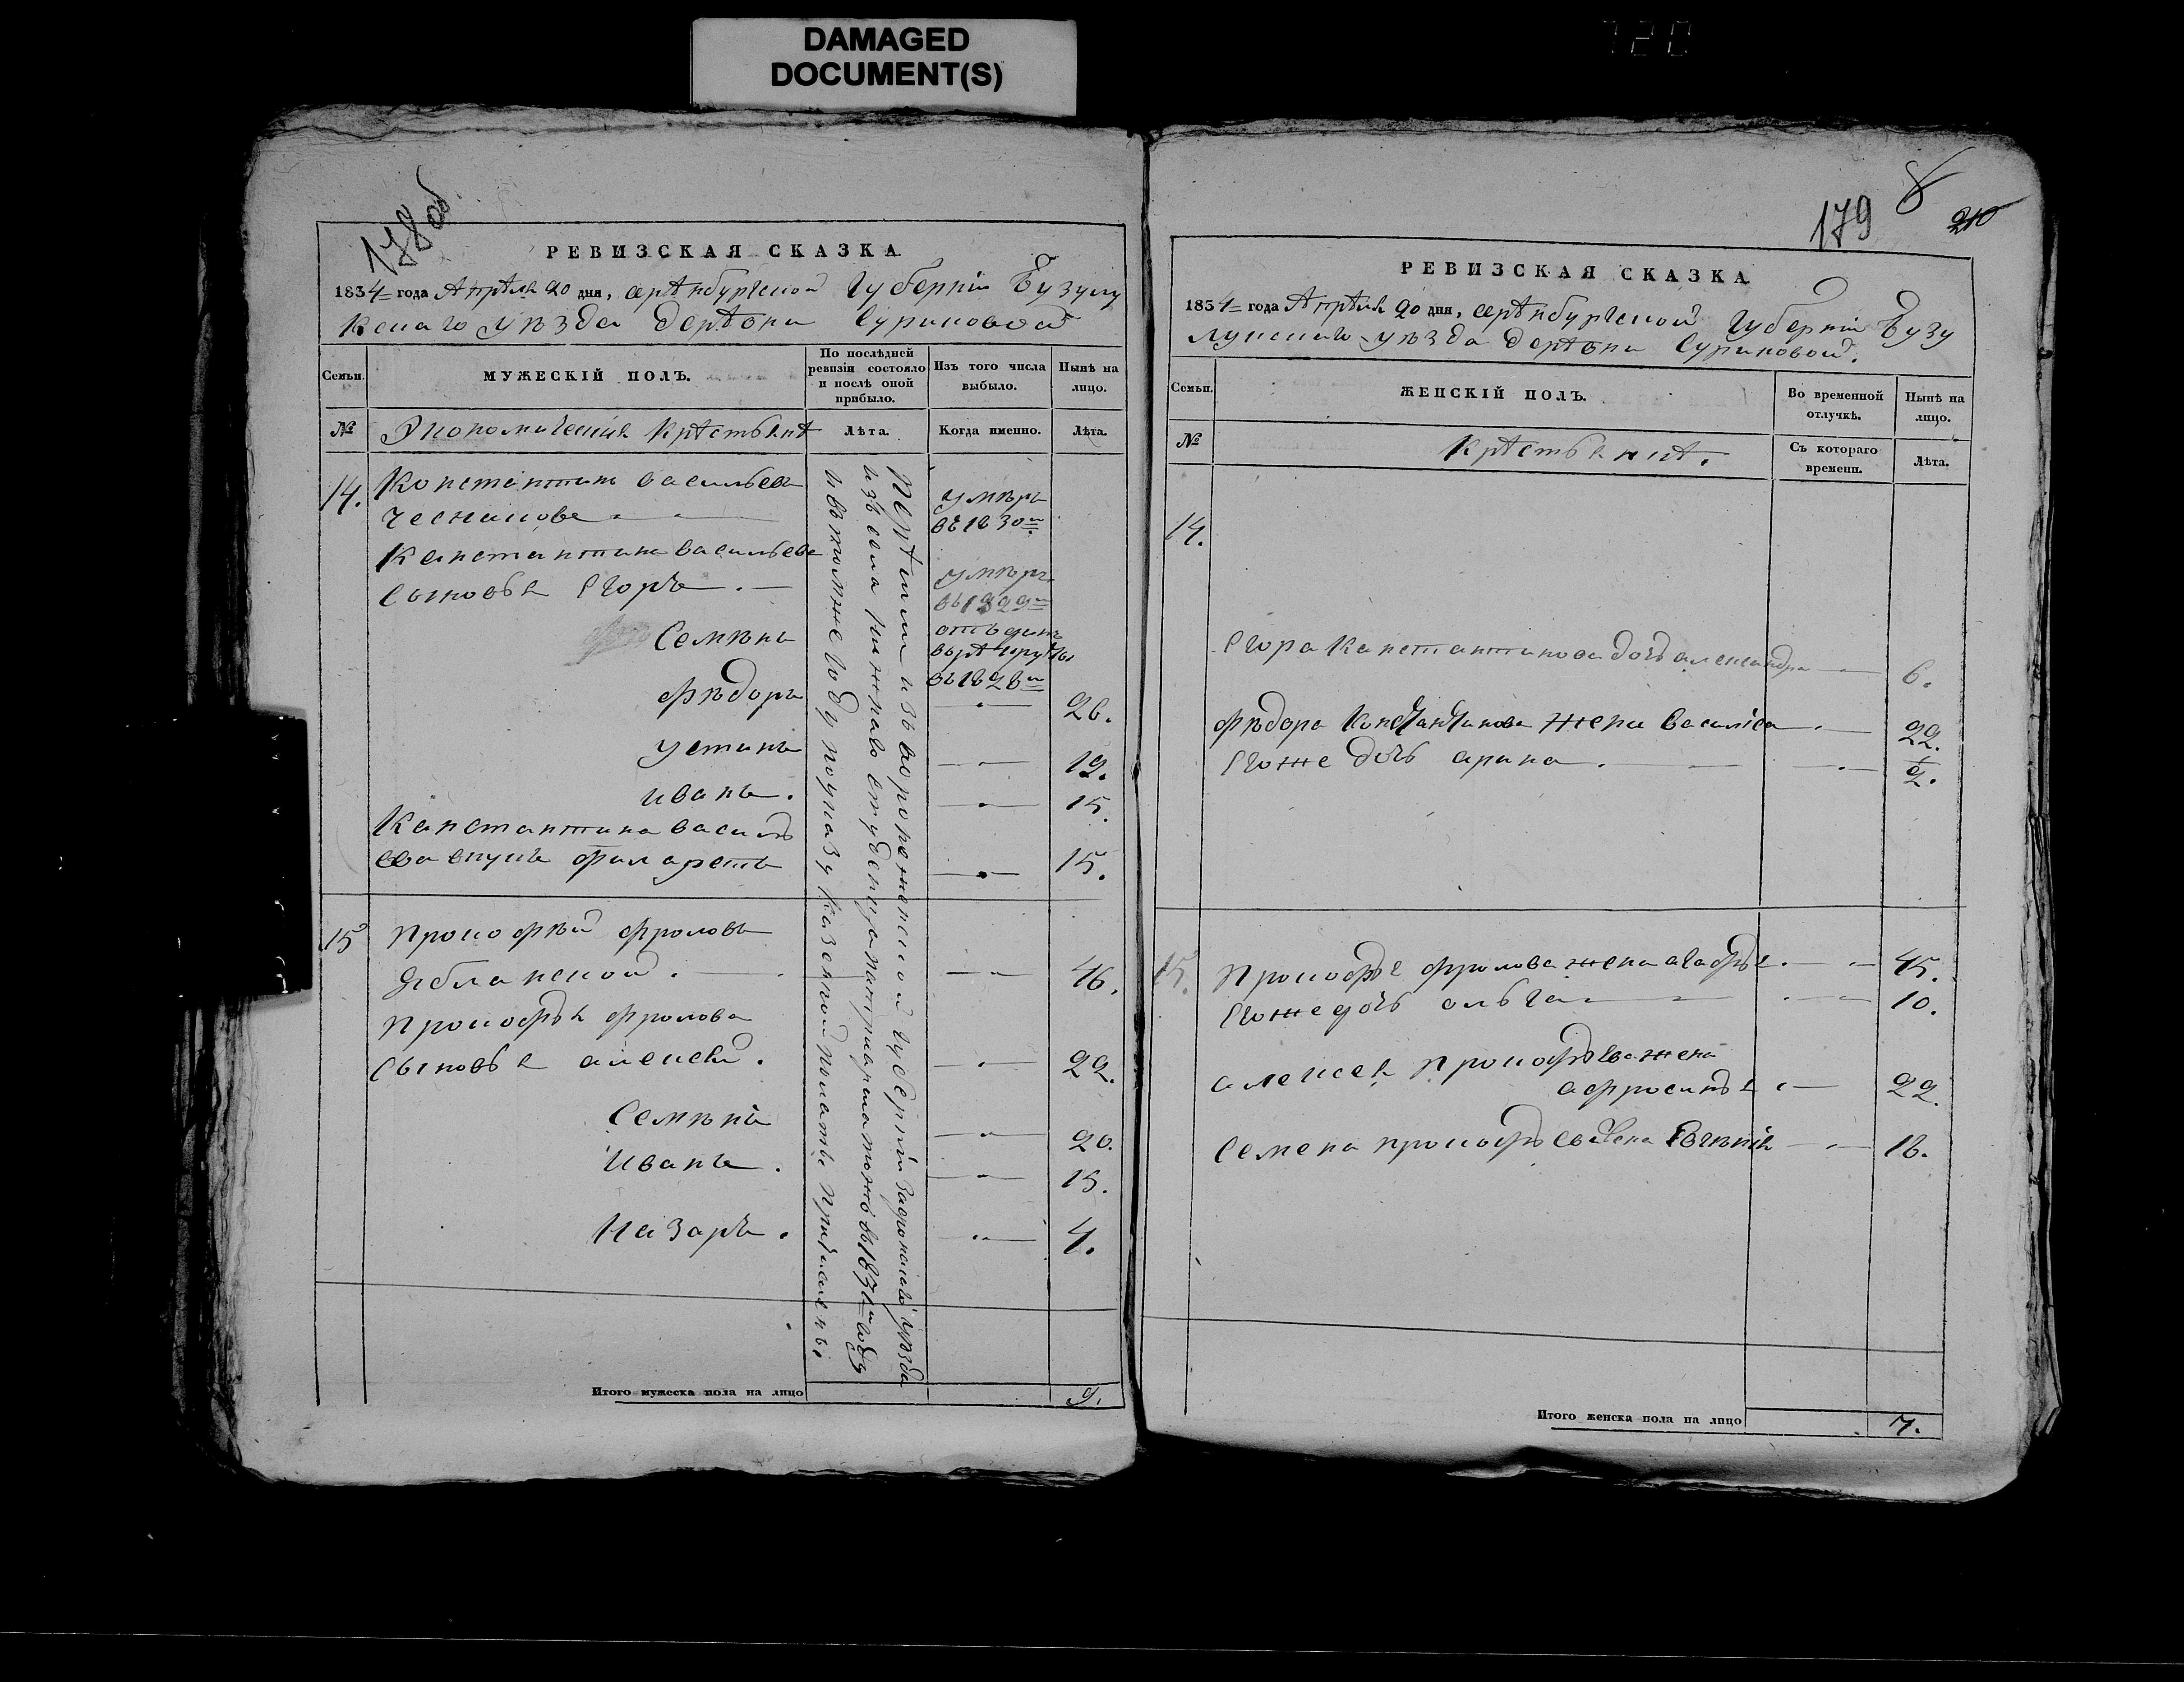 DAMAGED
DOCUMENT(S)
178 об
РЕВИЗСКАЯ СКАЗКА
1834 года Апреля 20 дня, Оренбургской Губернии Бузулу
кскаго уѣзда деревни Суриковой
Семьи.
МУЖЕСКІЙ ПОЛЪ.
По послѣдней
ревизіи состояло
и послѣ оной
прибыло.
Изъ того числа
выбыло.
Нынѣ на
лицо.
№
Экономическия крестьяне
Лѣта.
Когда именно.
Лѣта.
14. Констентин васильевъ умѣръ
чеснаковъ въ 1830 м
Констентина васильева
сыновья Егоръ умѣръ
въ 1829 м
Семѣнъ отъданъ
в рекруты
въ 1828 м
Фѣдоръ 26.
устинъ 19.
иванъ. 15.
Констентина василь
ева внукъ филаретъ 15.
15 прокофѣй фроловъ
Яблонской. 46.
прокофья фролова
сыновья алексей. 22.
Семѣнъ 20.
Иванъ. 15.
Назаръ. 4.
перешли из воронежской губерніи задонскаго уѣзда
изъ села нижняго студенца в 1831 м году
и в томже году по указу казенной палаты причислены
Итого мужеска пола на лицо
9.
179
8
210
РЕВИЗСКАЯ СКАЗКА
1834 года Апреля 20 дня, Оренбургской Губерніи Бузу
лукскаго уѣзда деревни Суриковой.
Семьи.
ЖЕНСКІЙ ПОЛЪ.
Во временной
отлучкѣ.
Нынѣ на
лицо.
№
крестьяне.
Съ котораго
времени.
Лѣта.
14.
Егора Констентинова дочь александра 6.
фѣдора Константинова жена василиса 22.
Егоже дочь арина. ½.
15. прокофья фролова жена агафья. 45.
Егоже дочь ольга 10.
алексея прокофьева жена
афросинья 22.
Семена прокофьева жена Евгѣнія 18.
Итого женска пола на лицо
7.